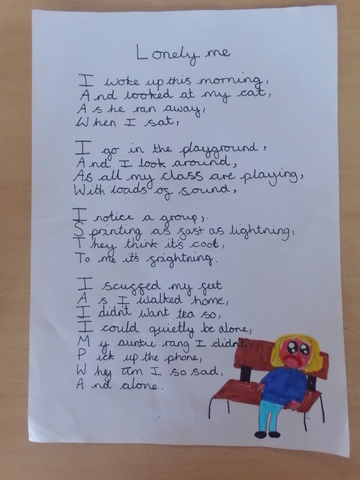 Lonely me
I woke up this morning,
And looked at my cat,
As he ran away,
When I sat,
I go in the playground,
And I look around,
As all my class are playing,
With loads of sound,
I notice a group,
Sprinting as fast as lightning,
They think it's cool,
To me it's frightning.
I scuffed my feet
As I walked home,
I didn't want tea so,
I could quietly be alone,
My auntie rang I didn't
Pick up the phone,
Why am I so sad,
And alone.